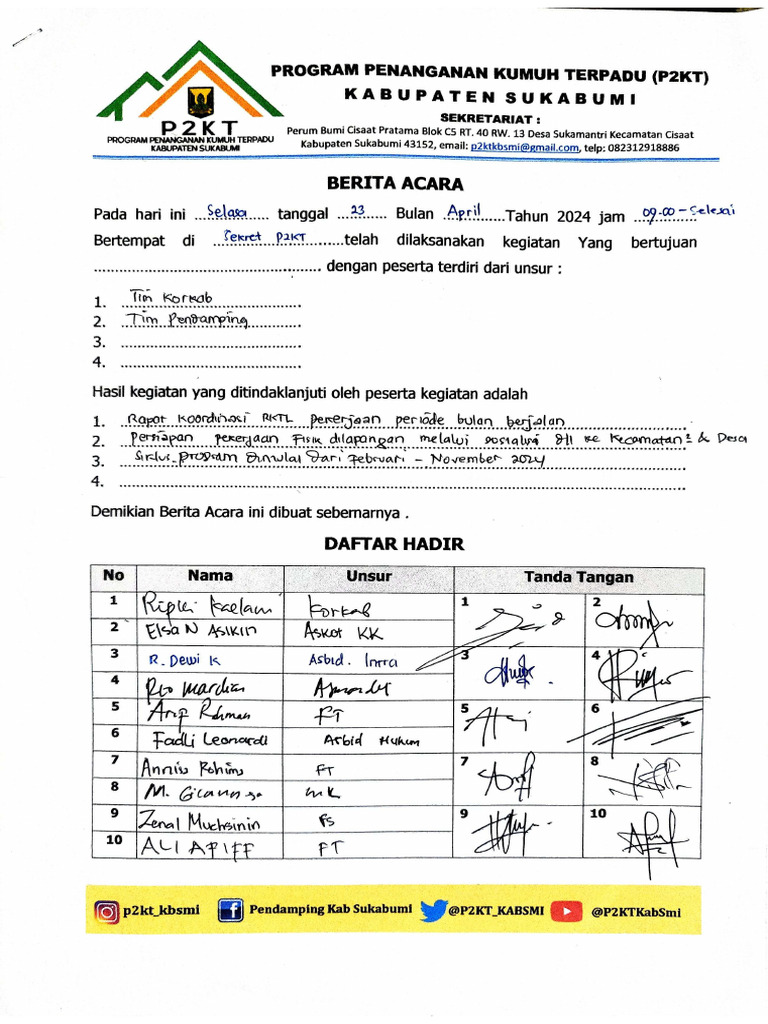 P2KT
PROGRAM PENANGANAN KUMUH TERPADU
KABUPATEN SUKABUMI
PROGRAM PENANGANAN KUMUH TERPADU (P2KT)
KABUPATEN SUKABUMI
SEKRETARIAT :
Perum Bumi Cisaat Pratama Blok C5 RT. 40 RW. 13 Desa Sukamantri Kecamatan Cisaat
Kabupaten Sukabumi 43152, email: p2ktkbsmi@gmail.com, telp: 082312918886
BERITA ACARA
Pada hari ini Selasa tanggal 23 Bulan April Tahun 2024 jam 09.00 - Selesai
Bertempat di Sekret P2KT telah dilaksanakan kegiatan Yang bertujuan
dengan peserta terdiri dari unsur :
1. Tim Korkab
2. Tim Pendamping
3.
4.
Hasil kegiatan yang ditindaklanjuti oleh peserta kegiatan adalah
1. Rapat Koordinasi RKTL pekerjaan periode bulan berjalan
2. Persiapan pekerjaan Fisik dilapangan melalui sosialisasi ke Kecamatan² & Desa
3. Siklus program dimulai dari Februari - November 2024
4.
Demikian Berita Acara ini dibuat sebemarnya .
DAFTAR HADIR
No Nama Unsur Tanda Tangan
1 Korkab 1 2
2 Elsa N Asikin Askot KK
3 R. Dewi K Asbid. Infra 3 4
4 Rio Mardian
5 Arif Rahman FT 5 6
6 Fadli Leonardi Asbid Hukum
7 FT 7 8
8 M.
9 Zenal Muchsinin FS 9 10
10 ALI APIFF FT
p2kt_kbsmi Pendamping Kab Sukabumi @P2KT_KABSMI @P2KTKabSmi